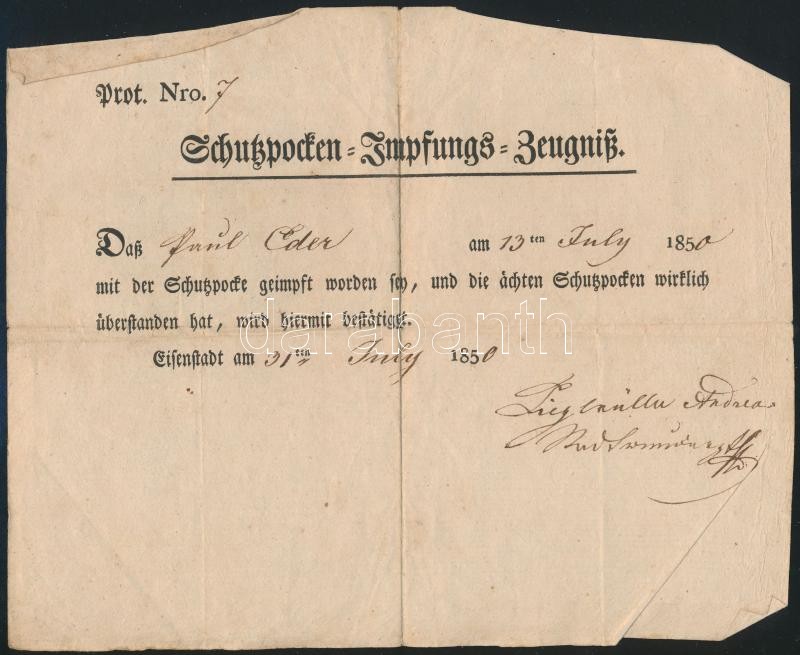 Prot. Nro. 7
Schutzpocken-Impfungs-Zeugniß.
Daß Paul Eder am 13ten July 1850
mit der Schutzpocke geimpft worden sey, und die ächten Schutzpocken wirklich
überstanden hat, wird hiermit bestätigt.
darabanth
Eisenstadt am 31ten July 1850
Andreas